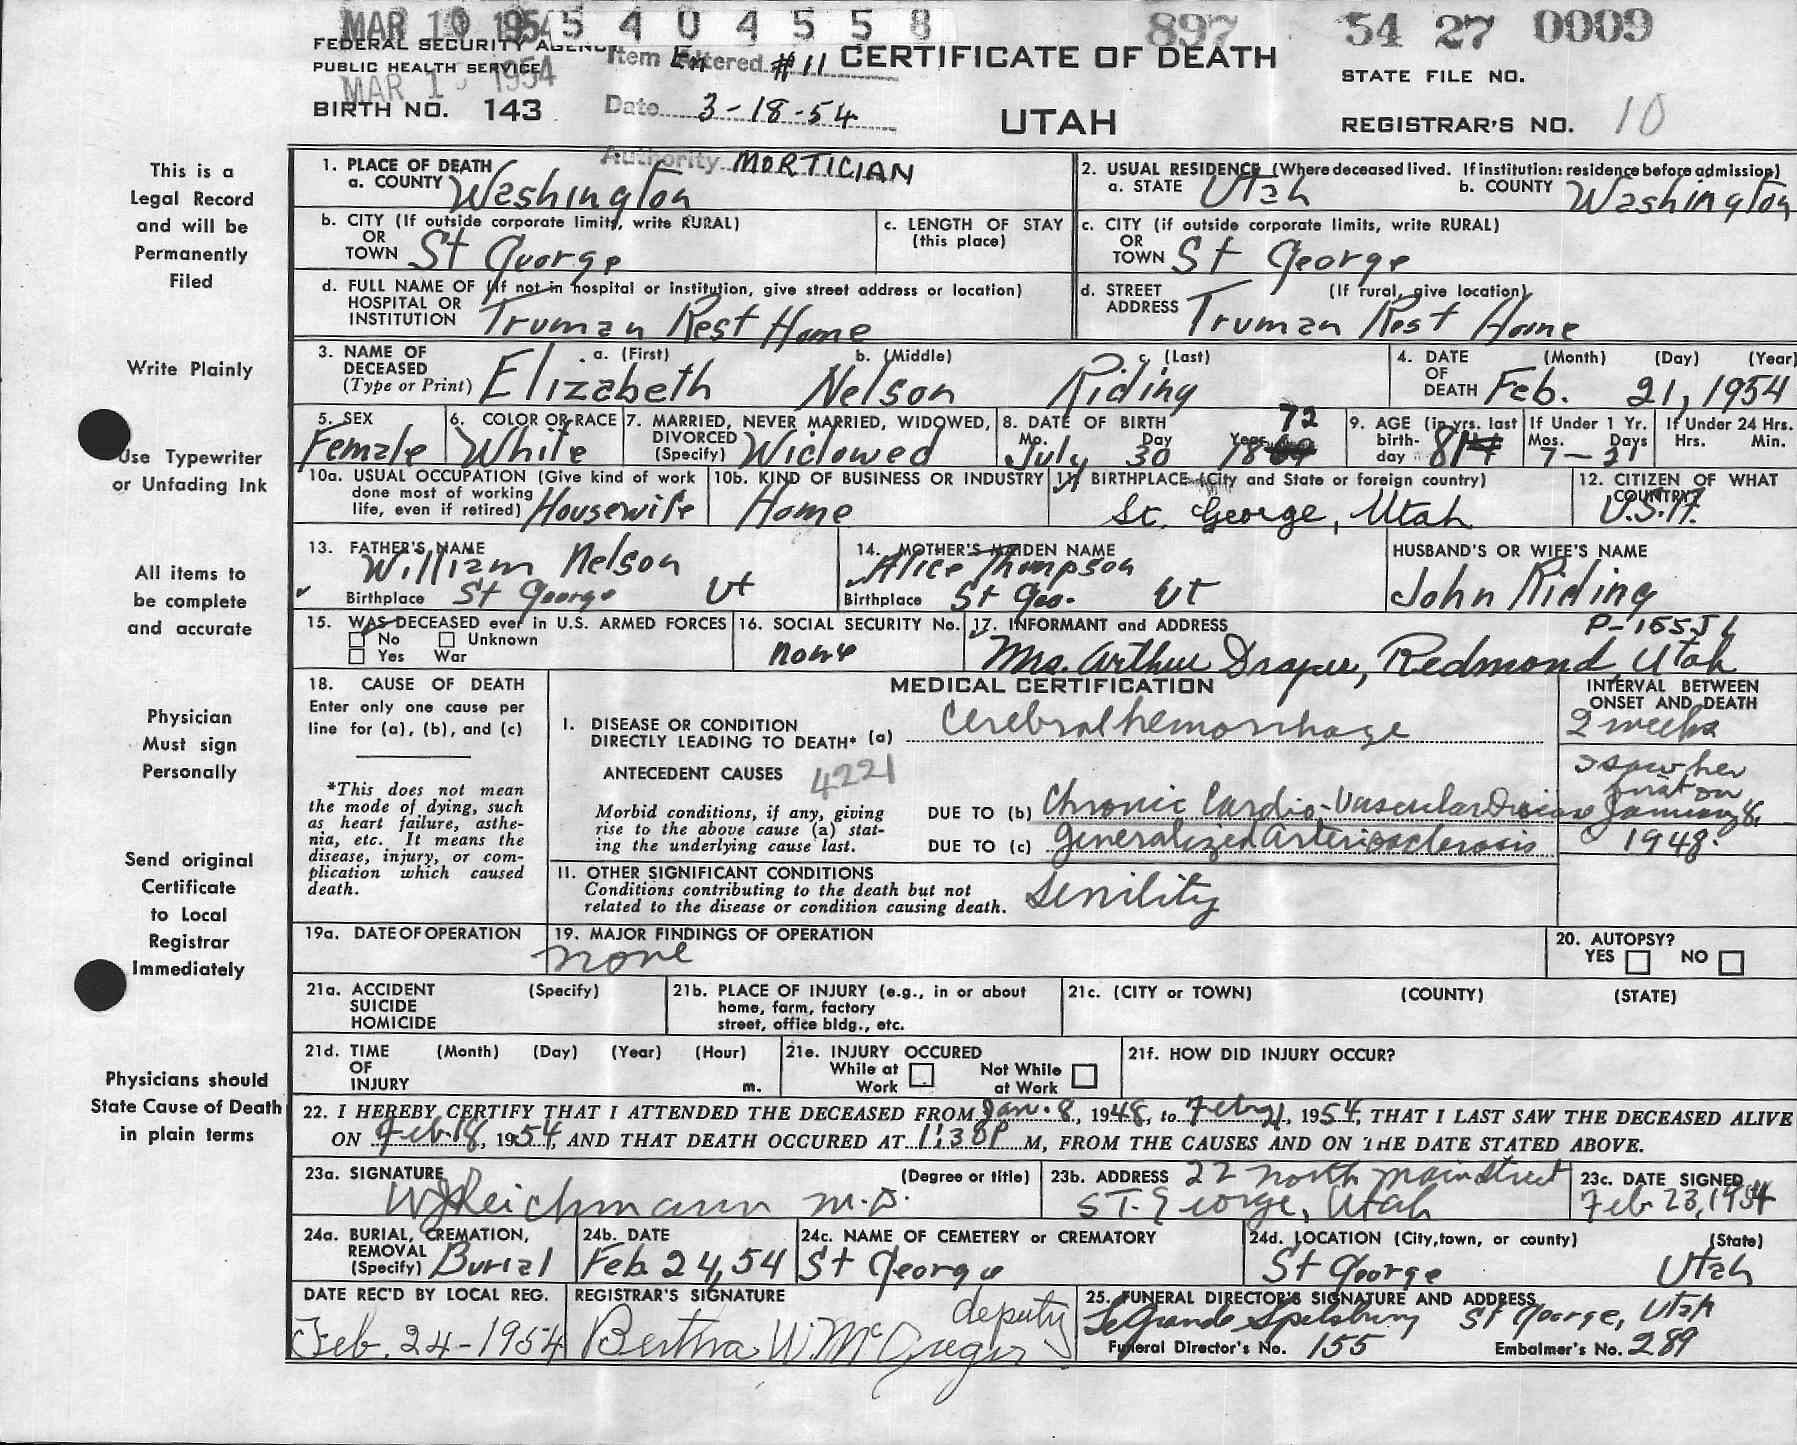 MAR 10 1954 5 4 0 4 5 5 8 897 54 27 0009
FEDERAL SECURITY AGENCY Item Entered #11 CERTIFICATE OF DEATH
PUBLIC HEALTH SERVICE STATE FILE NO.
MAR 1 1954
BIRTH NO. 143 Date 3-18-54 UTAH REGISTRAR'S NO. 10
Authority MORTICIAN
This is a
Legal Record
and will be
Permanently
Filed
Write Plainly
Use Typewriter
or Unfading Ink
All items to
be complete
and accurate
Physician
Must sign
Personally
Send original
Certificate
to Local
Registrar
Immediately
Physicians should
State Cause of Death
in plain terms
1. PLACE OF DEATH
a. COUNTY Washington
2. USUAL RESIDENCE (Where deceased lived. If institution: residence before admission)
a. STATE Utah b. COUNTY Washington
b. CITY (If outside corporate limits, write RURAL)
OR
TOWN St George
c. LENGTH OF STAY
(this place)
c. CITY (if outside corporate limits, write RURAL)
OR
TOWN St George
d. FULL NAME OF (If not in hospital or institution, give street address or location)
HOSPITAL OR
INSTITUTION Truman Rest Home
d. STREET (If rural, give location)
ADDRESS Truman Rest Home
3. NAME OF a. (First) b. (Middle) c. (Last)
DECEASED
(Type or Print) Elizabeth Nelson Riding
4. DATE (Month) (Day) (Year)
OF
DEATH Feb. 21, 1954
5. SEX
Female
6. COLOR OR RACE
White
7. MARRIED, NEVER MARRIED, WIDOWED,
DIVORCED
(Specify) Widowed
8. DATE OF BIRTH 72
Mo. Day Year
July 30 18
9. AGE (in yrs. last
birth-
day 81
If Under 1 Yr.
Mos. Days
7 - 21
If Under 24 Hrs.
Hrs. Min.
10a. USUAL OCCUPATION (Give kind of work
done most of working
life, even if retired) Housewife
10b. KIND OF BUSINESS OR INDUSTRY
Home
11. BIRTHPLACE (City and State or foreign country)
St. George, Utah
12. CITIZEN OF WHAT
COUNTRY?
U.S.A.
13. FATHER'S NAME
William Nelson
Birthplace St George Ut
14. MOTHER'S MAIDEN NAME
Alice Thompson
Birthplace St Geo. Ut
HUSBAND'S OR WIFE'S NAME
John Riding
15. WAS DECEASED ever in U.S. ARMED FORCES
No Unknown
Yes War
16. SOCIAL SECURITY No.
none
17. INFORMANT and ADDRESS
Mrs. Arthur Draper, Redmond, Utah
18. CAUSE OF DEATH
Enter only one cause per
line for (a), (b), and (c)
*This does not mean
the mode of dying, such
as heart failure, asthe-
nia, etc. It means the
disease, injury, or com-
plication which caused
death.
MEDICAL CERTIFICATION
INTERVAL BETWEEN
ONSET AND DEATH
I. DISEASE OR CONDITION
DIRECTLY LEADING TO DEATH* (a) Cerebral hemorrhage 2 weeks
ANTECEDENT CAUSES 4221
Morbid conditions, if any, giving
rise to the above cause (a) stat-
ing the underlying cause last.
DUE TO (b) Chronic Cardio-Vascular Disease
DUE TO (c) Generalized arteriosclerosis
I saw her
first on
January 8,
1948.
II. OTHER SIGNIFICANT CONDITIONS
Conditions contributing to the death but not
related to the disease or condition causing death. Senility
19a. DATE OF OPERATION
19. MAJOR FINDINGS OF OPERATION
none
20. AUTOPSY?
YES NO
21a. ACCIDENT (Specify)
SUICIDE
HOMICIDE
21b. PLACE OF INJURY (e.g., in or about
home, farm, factory
street, office bldg., etc.
21c. (CITY or TOWN) (COUNTY) (STATE)
21d. TIME (Month) (Day) (Year) (Hour)
OF
INJURY m.
21e. INJURY OCCURED
While at Not While
Work at Work
21f. HOW DID INJURY OCCUR?
22. I HEREBY CERTIFY THAT I ATTENDED THE DECEASED FROM Jan. 8, 1948, to Feb 21, 1954, THAT I LAST SAW THE DECEASED ALIVE
ON Feb 18, 1954, AND THAT DEATH OCCURED AT 11:30P M, FROM THE CAUSES AND ON THE DATE STATED ABOVE.
23a. SIGNATURE (Degree or title)
W J Reichmann M.D.
23b. ADDRESS 22 North Main Street
St. George, Utah
23c. DATE SIGNED
Feb 23, 1954
24a. BURIAL, CREMATION,
REMOVAL
(Specify) Burial
24b. DATE
Feb. 24, 54
24c. NAME OF CEMETERY or CREMATORY
St George
24d. LOCATION (City, town, or county) (State)
St George Utah
DATE REC'D BY LOCAL REG.
Feb. 24-1954
REGISTRAR'S SIGNATURE
Bertha W. McGregor deputy
25. FUNERAL DIRECTOR'S SIGNATURE AND ADDRESS
LeGrande Spilsbury St George, Utah
Funeral Director's No. 155 Embalmer's No. 289